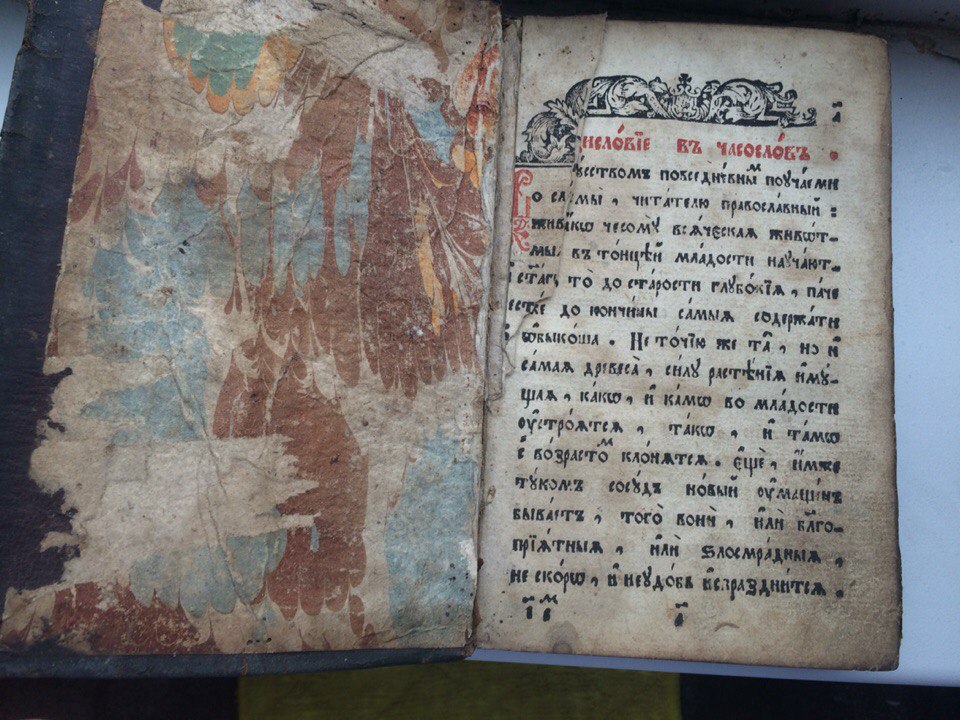 а҃
ᲂисло́вїе въ часосло́въ .
ꙋсствомъ повседне́внымъ поꙋча́еми
о са́мы , чита́телю правосла́вный :
жива́кѡ чесомꙋ̀ вся́ческая живѡт-
мы̀ въ то́нцѣй мла́дости наꙋча́ют-
то̀ до ста́рости глꙋбо́кїя , па́че
до кончи́ны самыя содержа́ти
ѡбыко́ша . Не то́чїю же та̑ , но и҆
са́мая древеса̀ , си́лꙋ расте́нїя и҆мꙋ́-
щая , ка́кѡ , и҆ ка́мѡ во мла́дости
ᲂу҆стро́ятся , та́кѡ , и҆ та́мѡ
с̾ во́зрастомъ клоня́тся . Е҆щѐ , и҆́мже
тꙋ́комъ сосꙋ́дъ но́вый ᲂу҆ма́щенъ
быва́етъ , того̀ вонѝ , и҆лѝ бл҃го-
прїя́тныя , и҆лѝ ѕлосмра́дныя ,
не ско́рѡ , и҆ неꙋдо́бь и҆спраздни́тся .